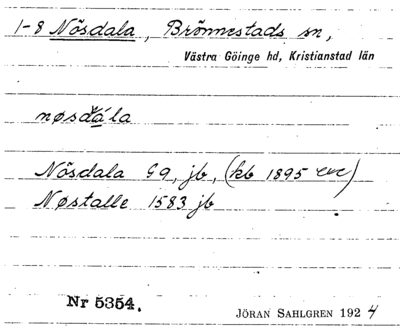 1-8 Nösdala, Brönnestads sn,
Västra Göinge hd, Kristianstad län
nøsdåla
Nösdala G9, jb, (kb 1895 etc)
Nøstalle 1583 jb
Nr 5354.
JÖRAN SAHLGREN 1924